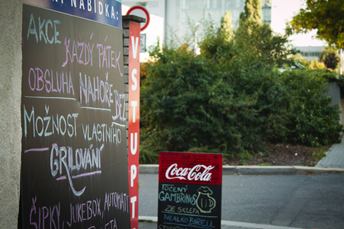 NABÍDKA
AKCE
KAŽDÝ PÁTEK
OBSLUHA NAHOŘE
MOŽNOST VLASTNÍHO
GRILOVÁNÍ
ŠIPKY, JUKEBOX, AUTOMAT
VSTUP
Coca-Cola
TOČENÝ
GAMBRINUS
ZE SKLEP
NEALKO BIRELL